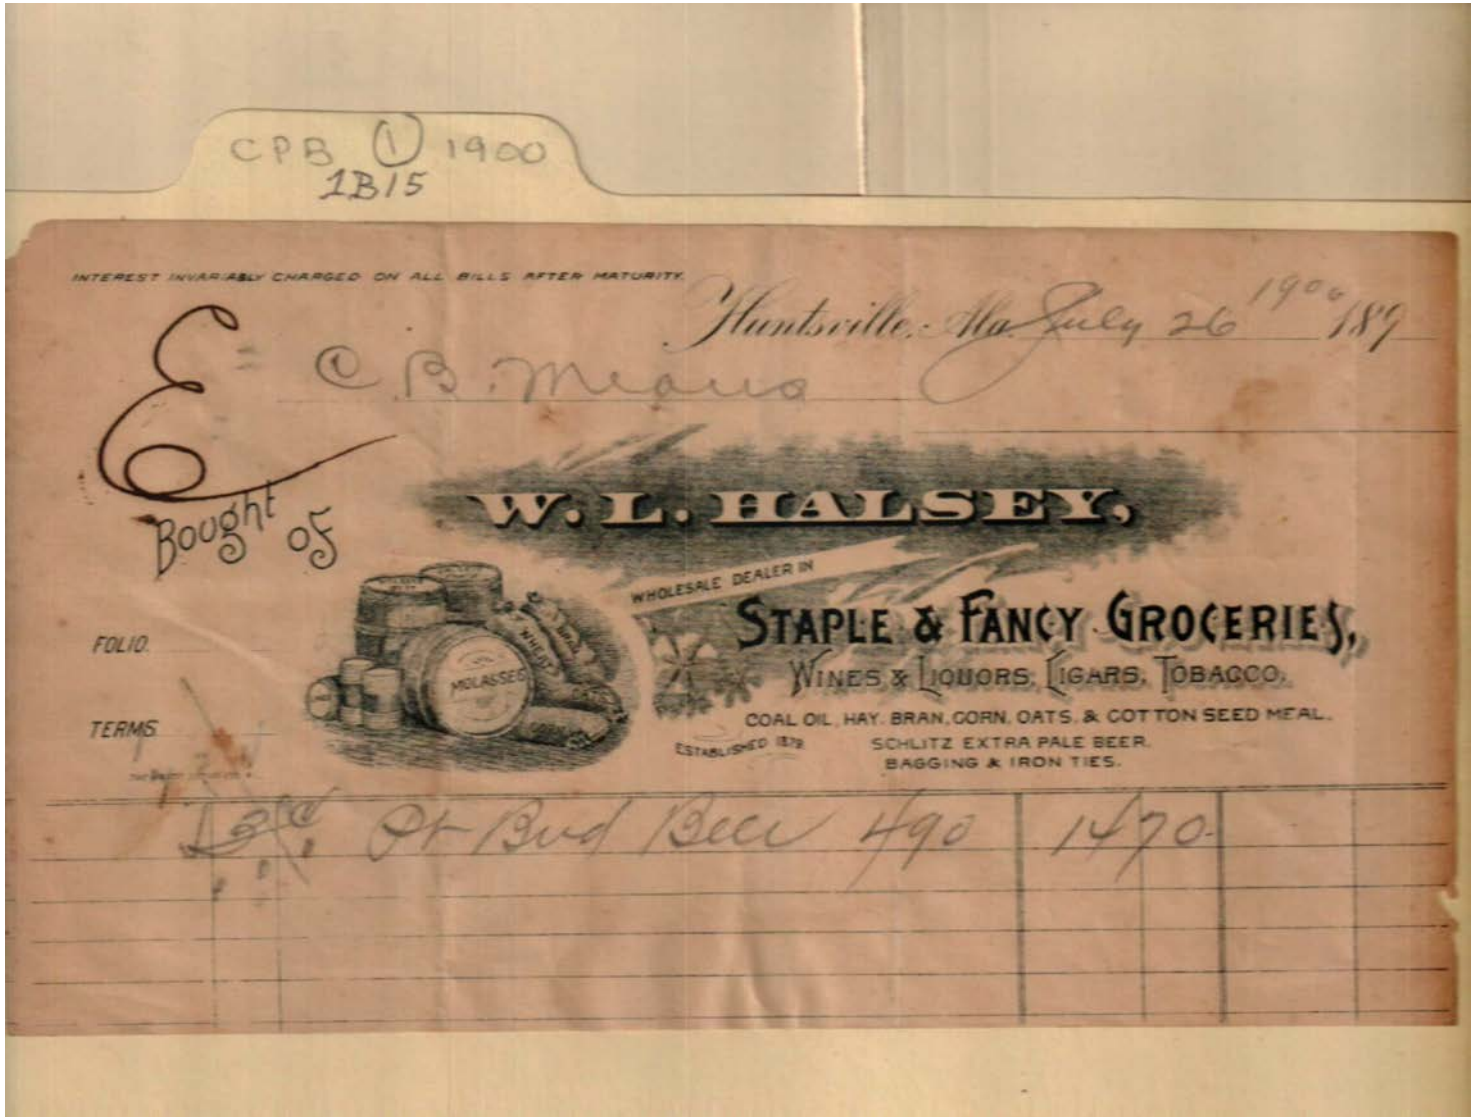 CPB 1 1900
1B15
INTEREST INVARIABLY CHARGED ON ALL BILLS AFTER MATURITY.
Huntsville, Ala. July 26 1900 189
C B. Means
Bought of
W. L. HALSEY,
WHOLESALE DEALER IN
STAPLE & FANCY GROCERIES,
WINES & LIQUORS, CIGARS, TOBACCO,
COAL OIL, HAY, BRAN, CORN, OATS, & COTTON SEED MEAL.
ESTABLISHED 1879
SCHLITZ EXTRA PALE BEER.
BAGGING & IRON TIES.
WHEAT
BRAN
MOLASSES
FOLIO.
TERMS
3 Pt Bud Beer 490 1470